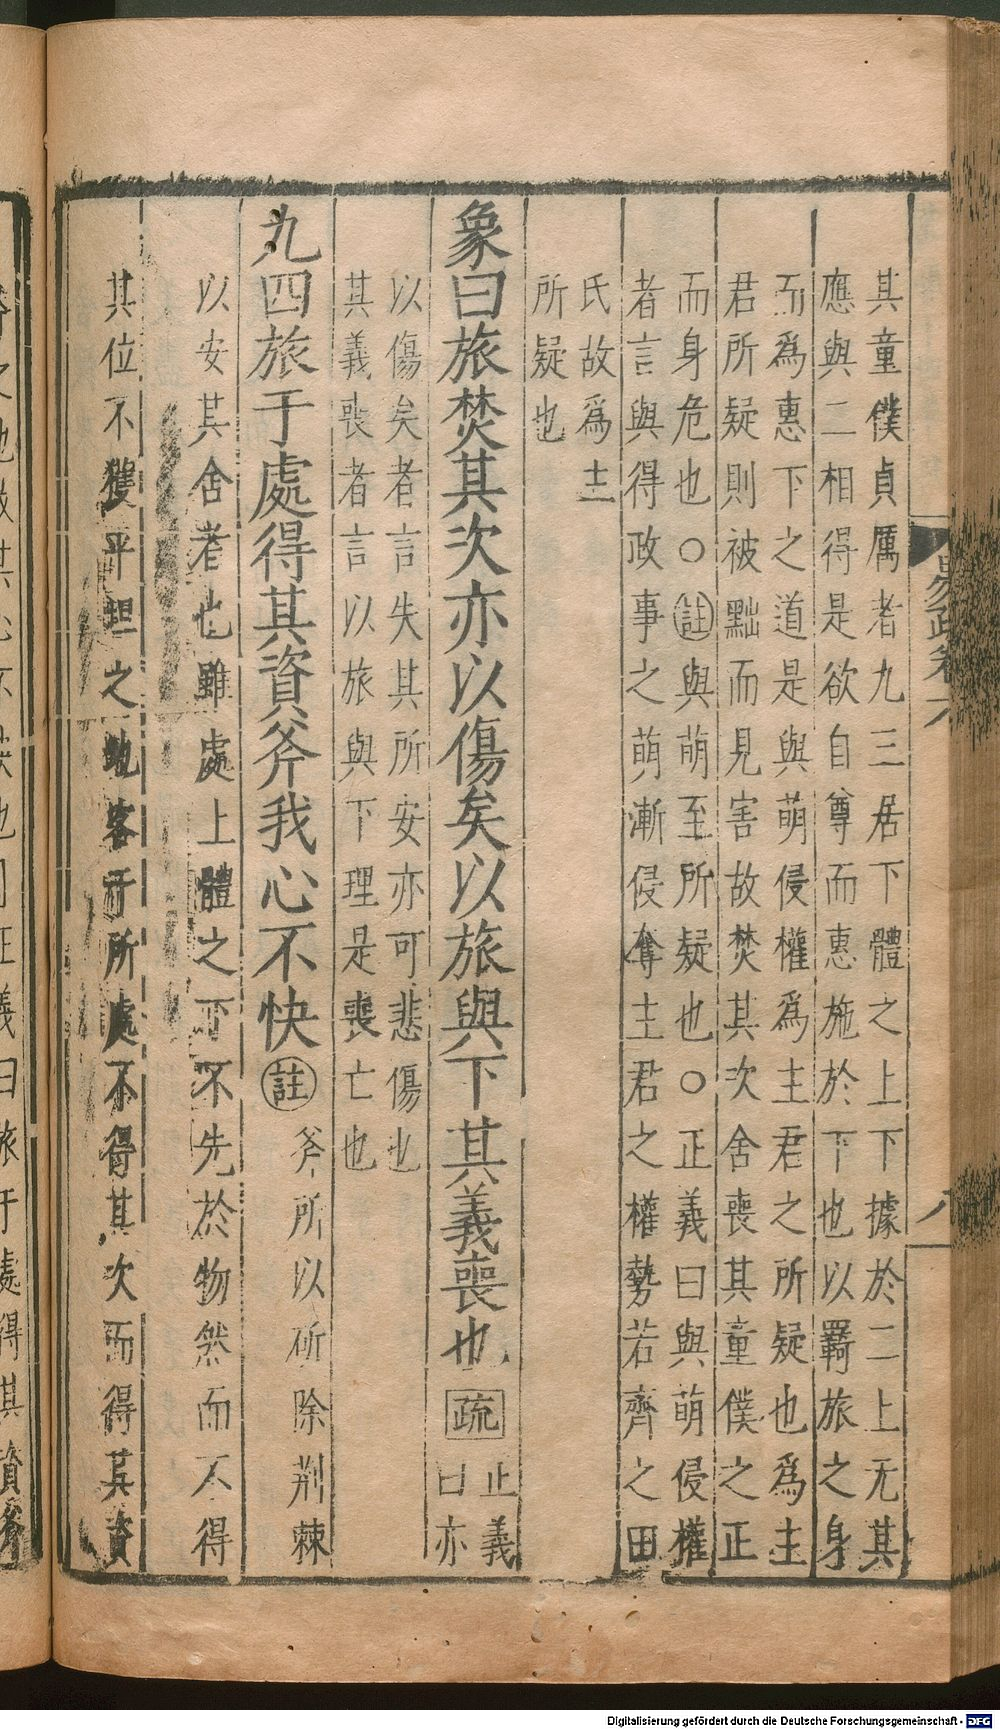 其童僕貞厲者九三居下體之上下據於二上无其
應與二相得是欲自尊而惠施於下也以羇旅之身
而爲惠下之道是與萌侵權爲主君之所疑也爲主
君所疑則被黜而見害故焚其次舍喪其童僕之正
而身危也○註與萌至所疑也○正義曰與萌侵權
者言與得政事之萌漸侵奪主君之權勢若齊之田
氏故爲主
所疑也
象曰旅焚其次亦以傷矣以旅與下其義喪也疏正義
曰亦
以傷矣者言失其所安亦可悲傷也
其義喪者言以旅與下理是喪亡也
九四旅于處得其資斧我心不快註斧所以斫除荆棘
以安其舍者也雖處上體之下不先於物然而不得
其位不獲平坦之地客于所處不得其次而得其資
易疏卷六
八
義曰旅于處得其資斧
Digitalisierung gefördert durch die Deutsche Forschungsgemeinschaft - DFG